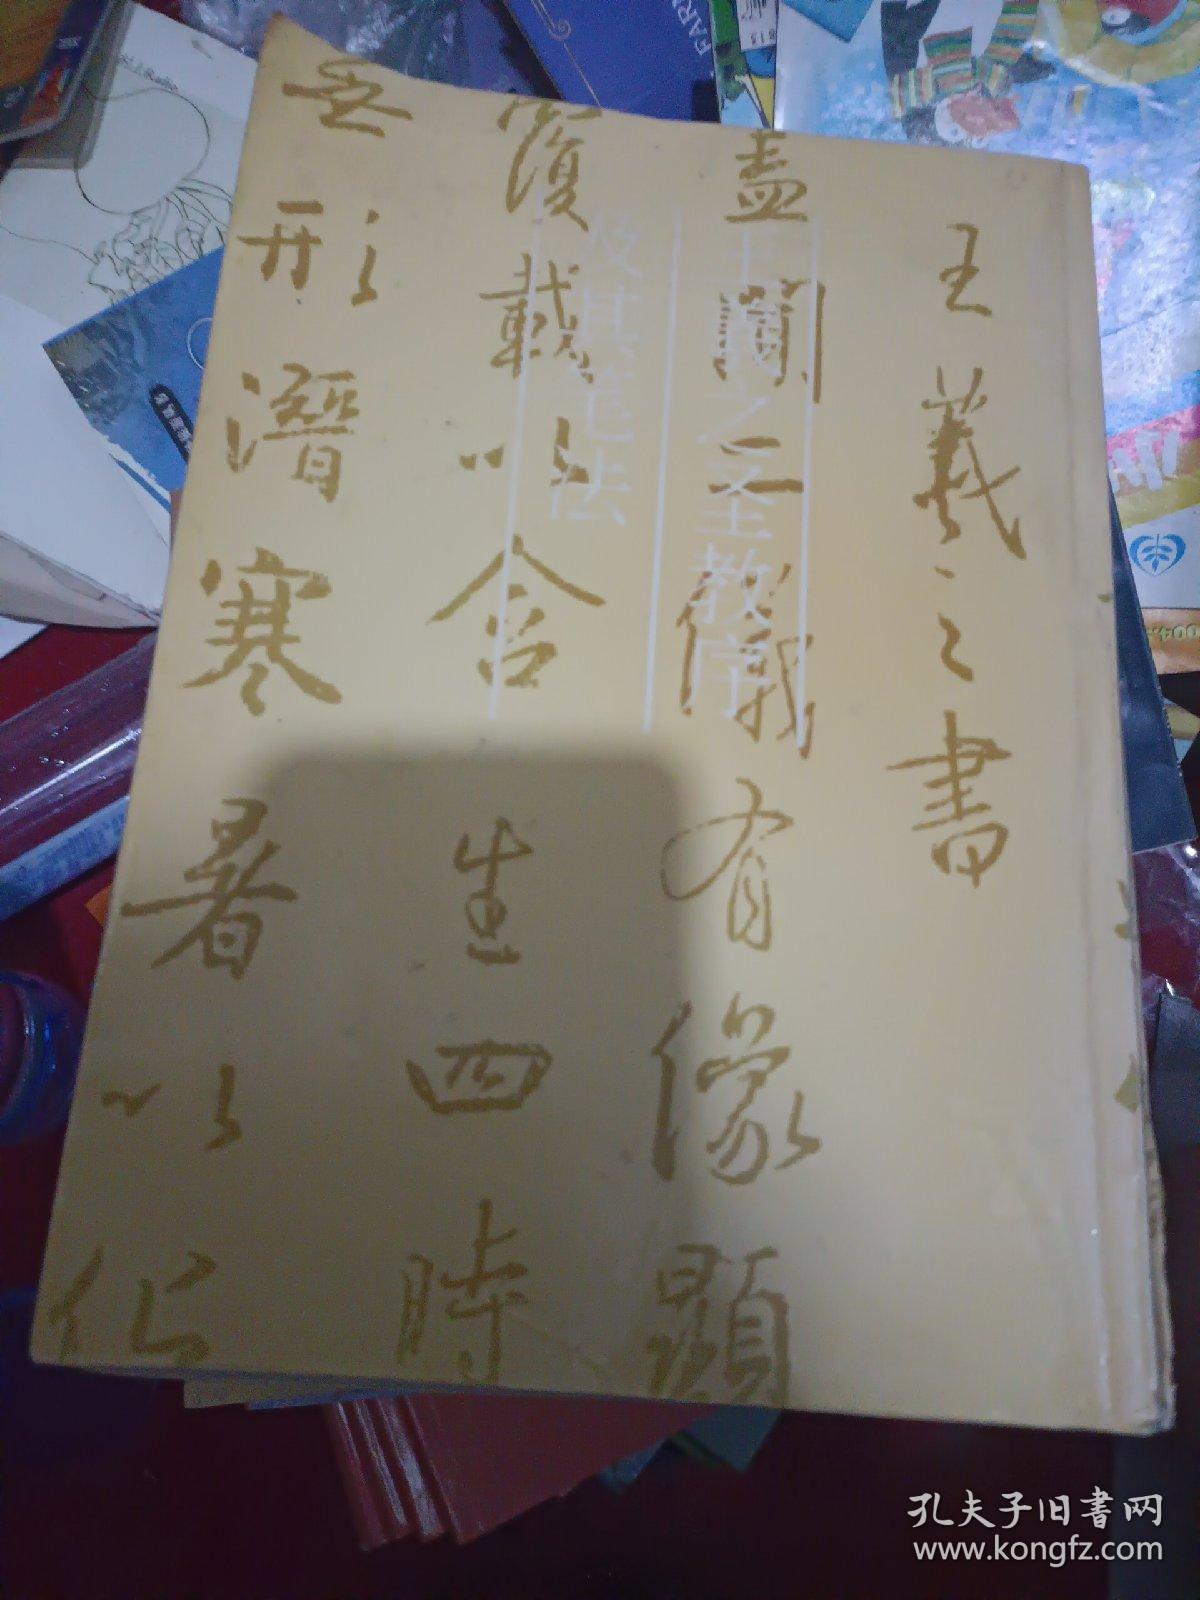 王羲之書
盖聞二儀有像顯
覆載以含生四時
無形潛寒暑以化
王羲之圣教序
及其笔法
孔夫子旧书网
www.kongfz.com